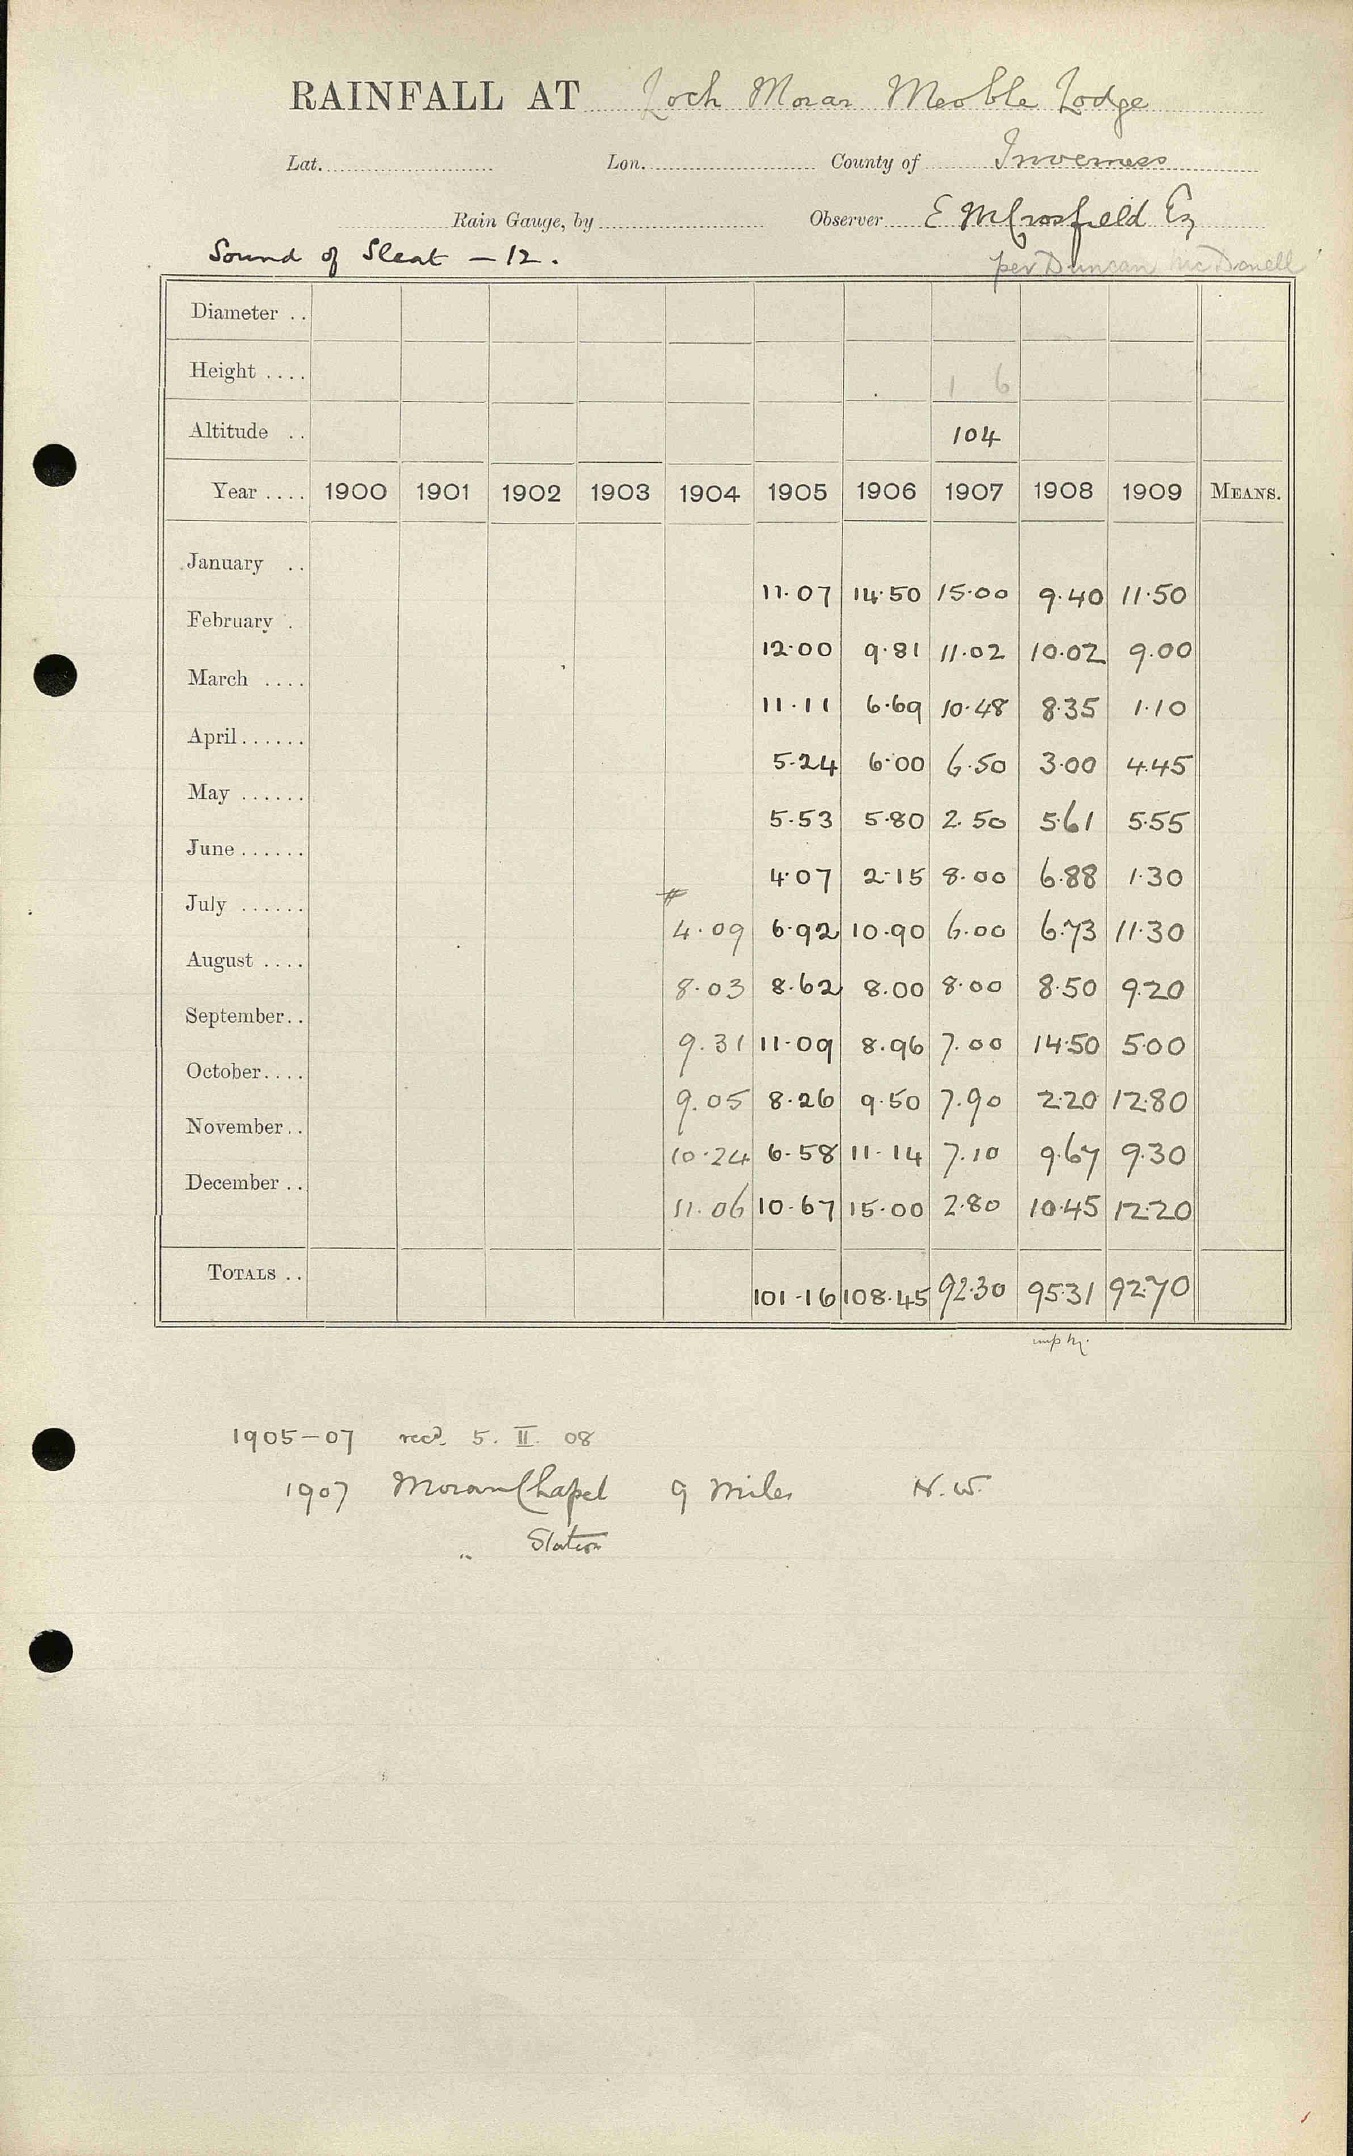 RAINFALL AT Loch Morar Meoble Lodge
Lat. Lon. County of Inverness
Rain Gauge, by Observer E M Crosfield Eq
Sound of Sleat - 12.
per Duncan McDonell
Diameter ..
Height .... 1 6
Altitude .. 104
Year .... 1900 1901 1902 1903 1904 1905 1906 1907 1908 1909 MEANS.
January .. 11.07 14.50 15.00 9.40 11.50
February . 12.00 9.81 11.02 10.02 9.00
March .... 11.11 6.69 10.48 8.35 1.10
April...... 5.24 6.00 6.50 3.00 4.45
May ...... 5.53 5.80 2.50 5.61 5.55
June...... 4.07 2.15 8.00 6.88 1.30
July ...... 4.09 6.92 10.90 6.00 6.73 11.30
August .... 8.03 8.62 8.00 8.00 8.50 9.20
September.. 9.31 11.09 8.96 7.00 14.50 5.00
October.... 9.05 8.26 9.50 7.90 2.20 12.80
November.. 10.24 6.58 11.14 7.10 9.67 9.30
December .. 11.06 10.67 15.00 2.80 10.45 12.20
TOTALS .. 101.16 108.45 92.30 95.31 92.70
1905-07 recd. 5. II. 08
1907 Morar Chapel 9 Miles N.W.
" Station